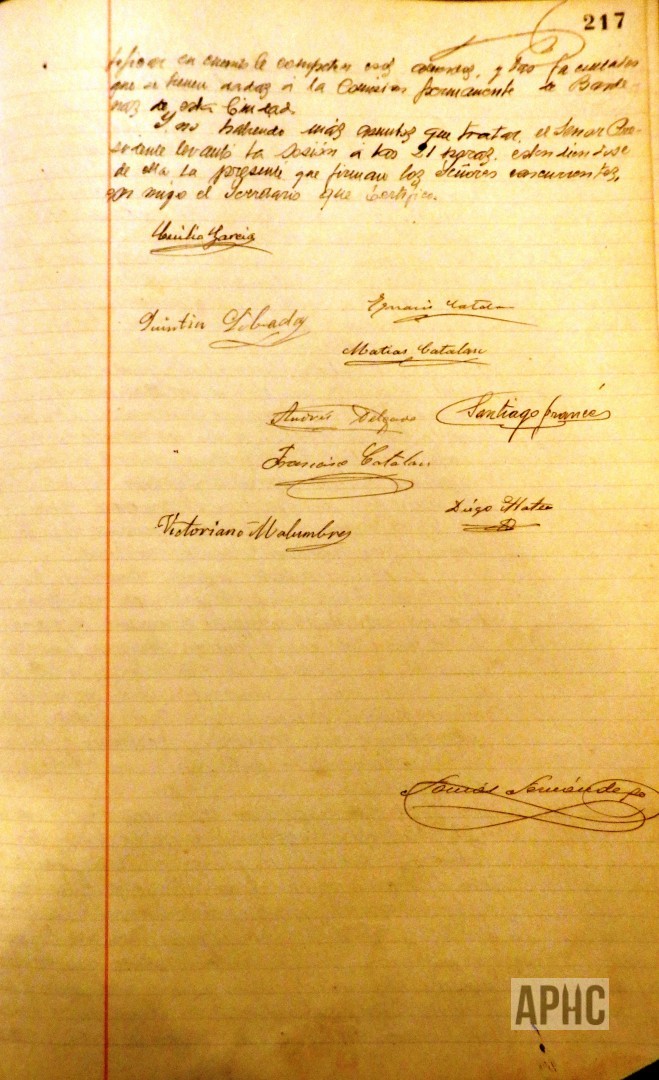 217
en cuanto le competen esos acuerdos, y
que se tienen dadas a la Comision permanente de Barde
nas de esta Ciudad.
Y no habiendo más asuntos que tratar, el Señor Pre
sidente levantó la sesión a las 21 horas, extendiendose
de ella la presente que firman los Señores concurrentes,
con migo el Secretario que certifico.
García
Quintin
Matias Catalan
Andrés Delgado
Santiago Francés
Francisco Catalan
Diego Mateo
Victoriano Malumbres
Tomás
APHC